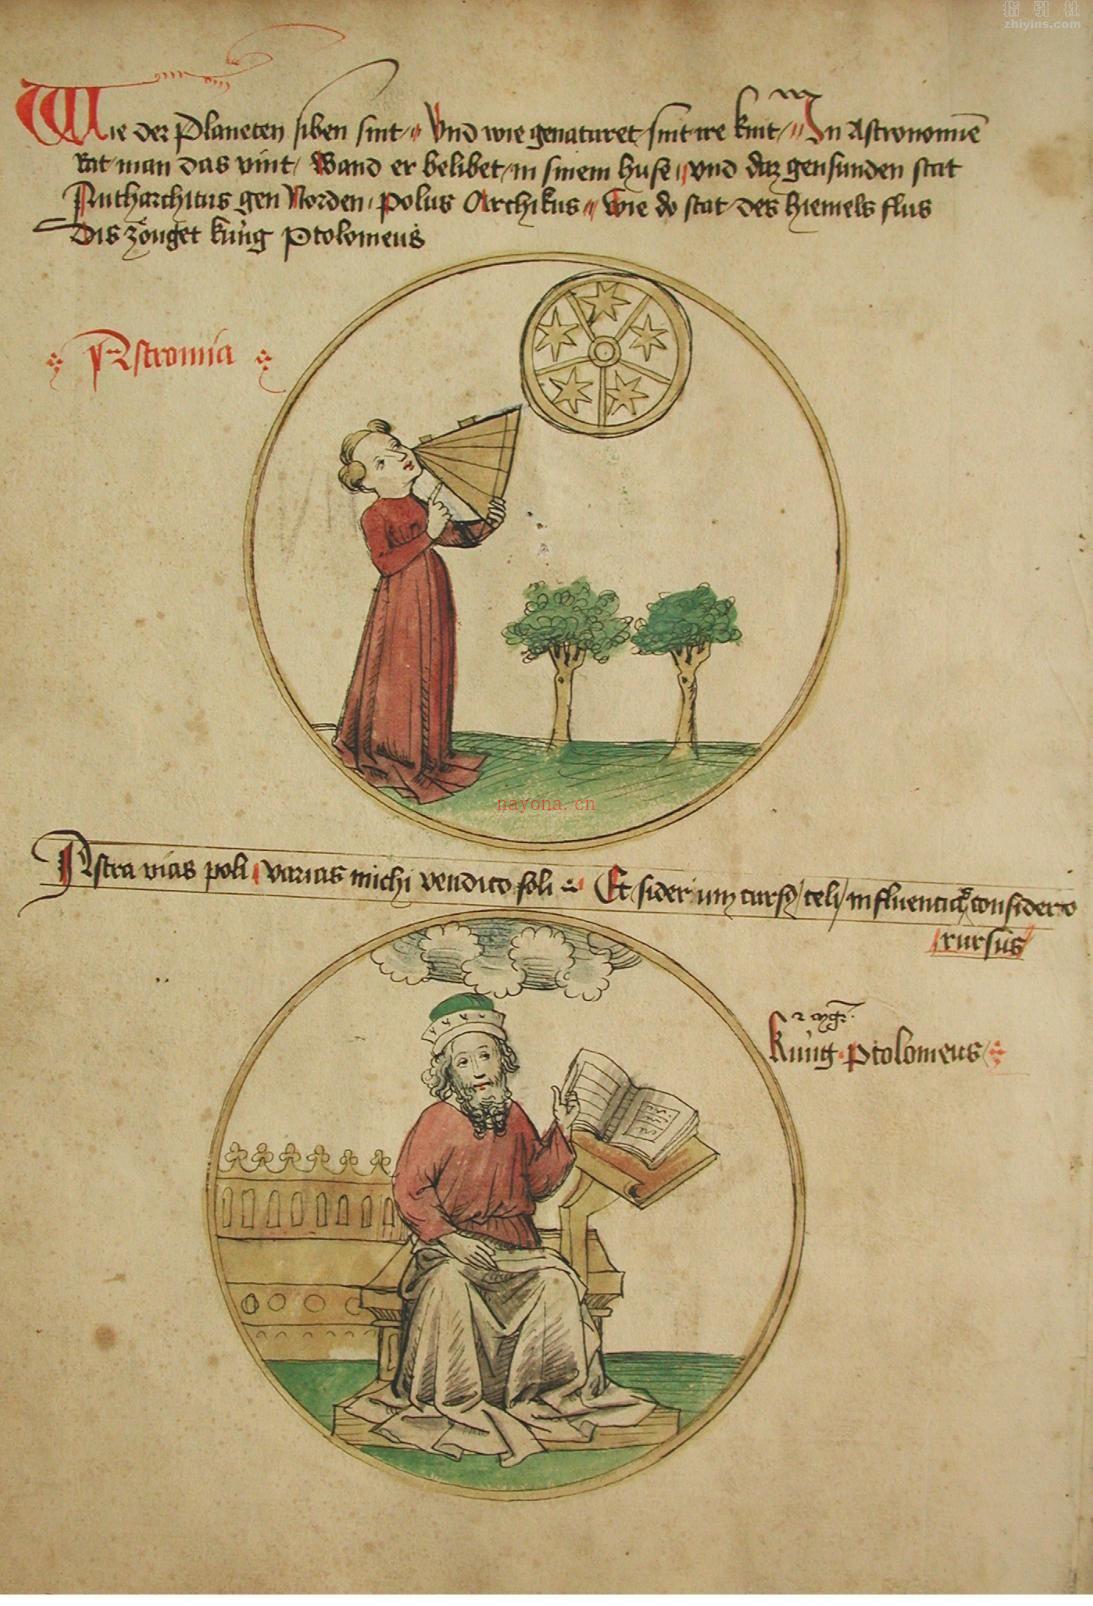 指引社
zhiyins.com
Wie der Planeten siben sint Vnd wie genaturet sint ire kint In Astronomie
Rat man das vint Wand er belibet in sinem huse vnd daz gen sunden stat
Antharchicus gen Norden polus Archikus Wie do stat des hiemels flus
Dis zöuget kung Ptolomeus
Astromia
nayona.cn
Astra vias poli varias michi vendico soli Et siderum curs celi influencia considero
rursus
kung ptolomeus